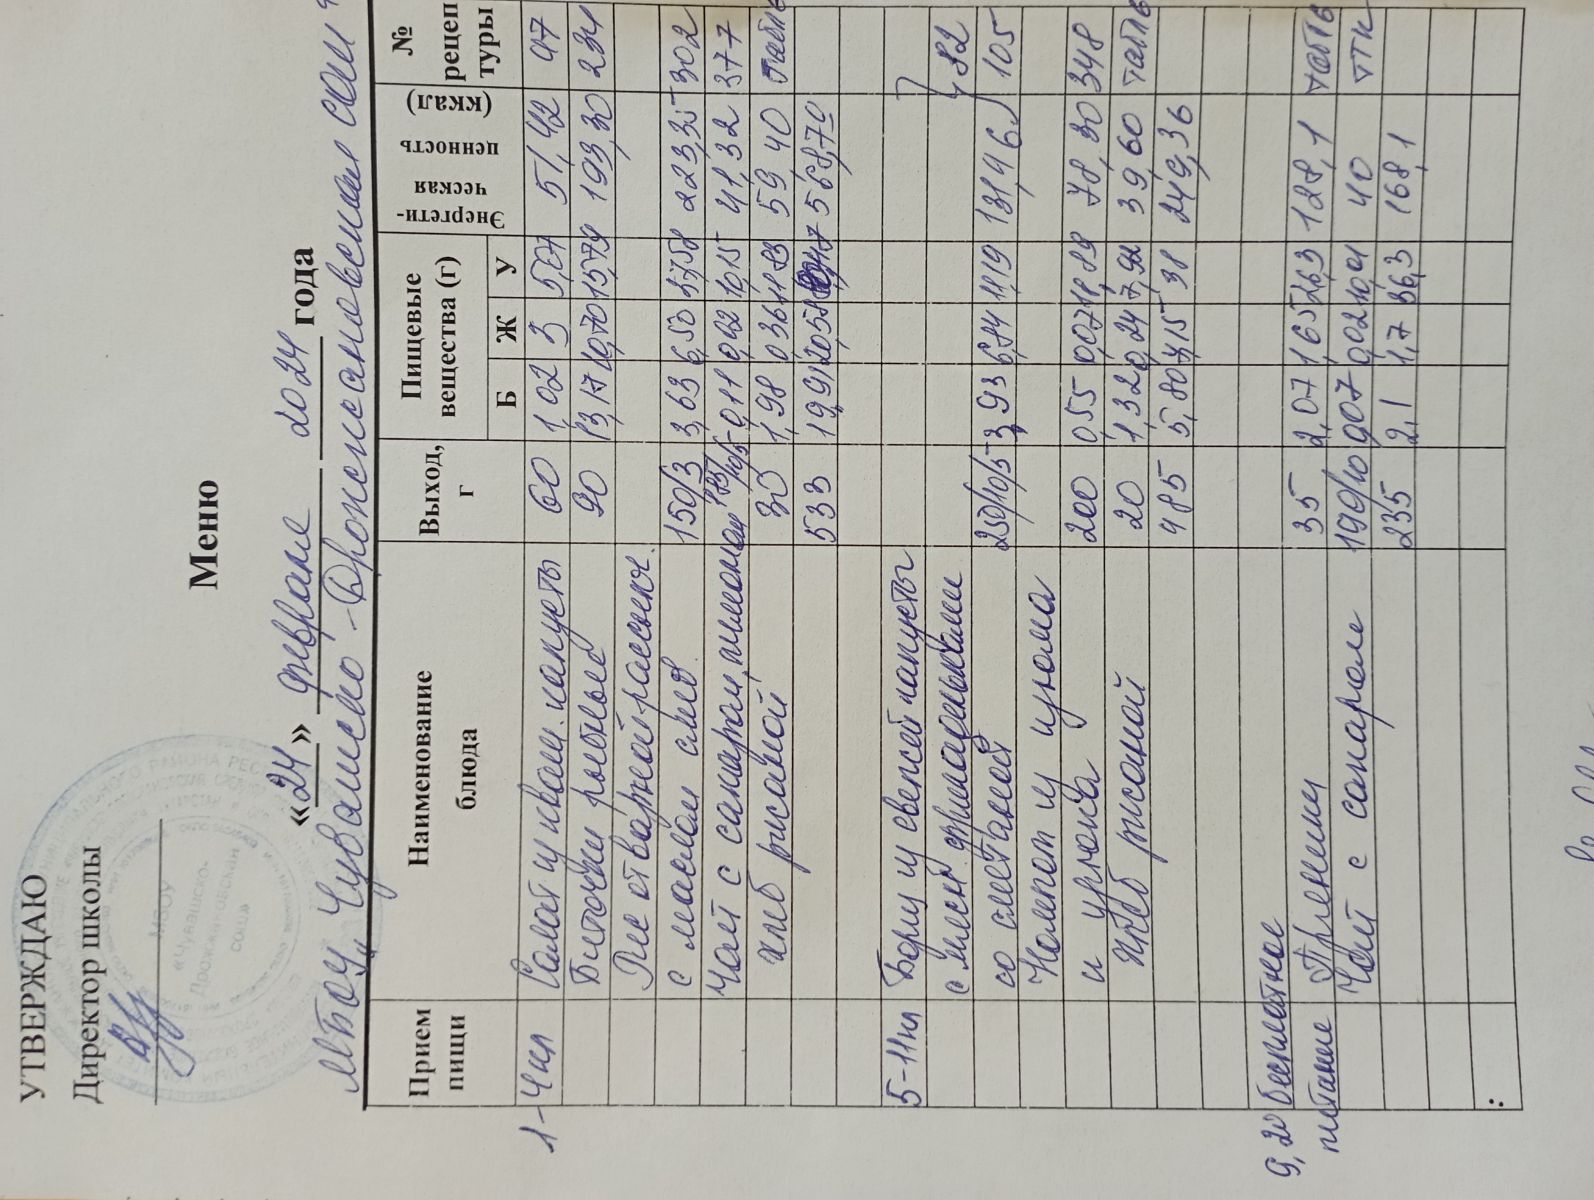 УТВЕРЖДАЮ
Директор школы
МБОУ
«Чувашско-
Дрожжановская
сош»
Меню
«24» февраля 2024 года
МБОУ "Чувашско-Дрожжановская сош"
Прием пищи Наименование блюда Выход, г Пищевые вещества (г) Б Ж У Энергети- ческая ценность (ккал) № рецеп туры
1-4кл Салат из кваш. капусты 60 1,02 3 5,07 51,42 47
Биточки рыбные 90 13,17 10,70 15,79 193,30 234
Рис отварной рассып.
с маслом слив. 150/3 3,63 6,50 37,58 223,35 302
Чай с сахаром, лимоном 0,11 0,02 10,15 41,32 377
Хлеб ржаной 30 1,98 0,36 11,93 59,40 табль
533 19,91 20,58 568,79
5-11кл Борщ из свежей капусты
с мясн. фрикадельками 82
со сметаной 250/10/5 3,93 6,94 11,19 131,46 105
Компот из изюма
и урюка 200 0,55 0,07 18,89 78,30 348
Хлеб ржаной 20 1,32 0,24 7,92 39,60 табль
485 5,80 7,15 38 249,36
9,20 бесплатное
питание Пряники 35 2,07 1,65 26,3 128,1 табль
Чай с сахаром 190/10 0,07 0,02 10,01 40 ттк
235 2,1 1,7 36,3 168,1